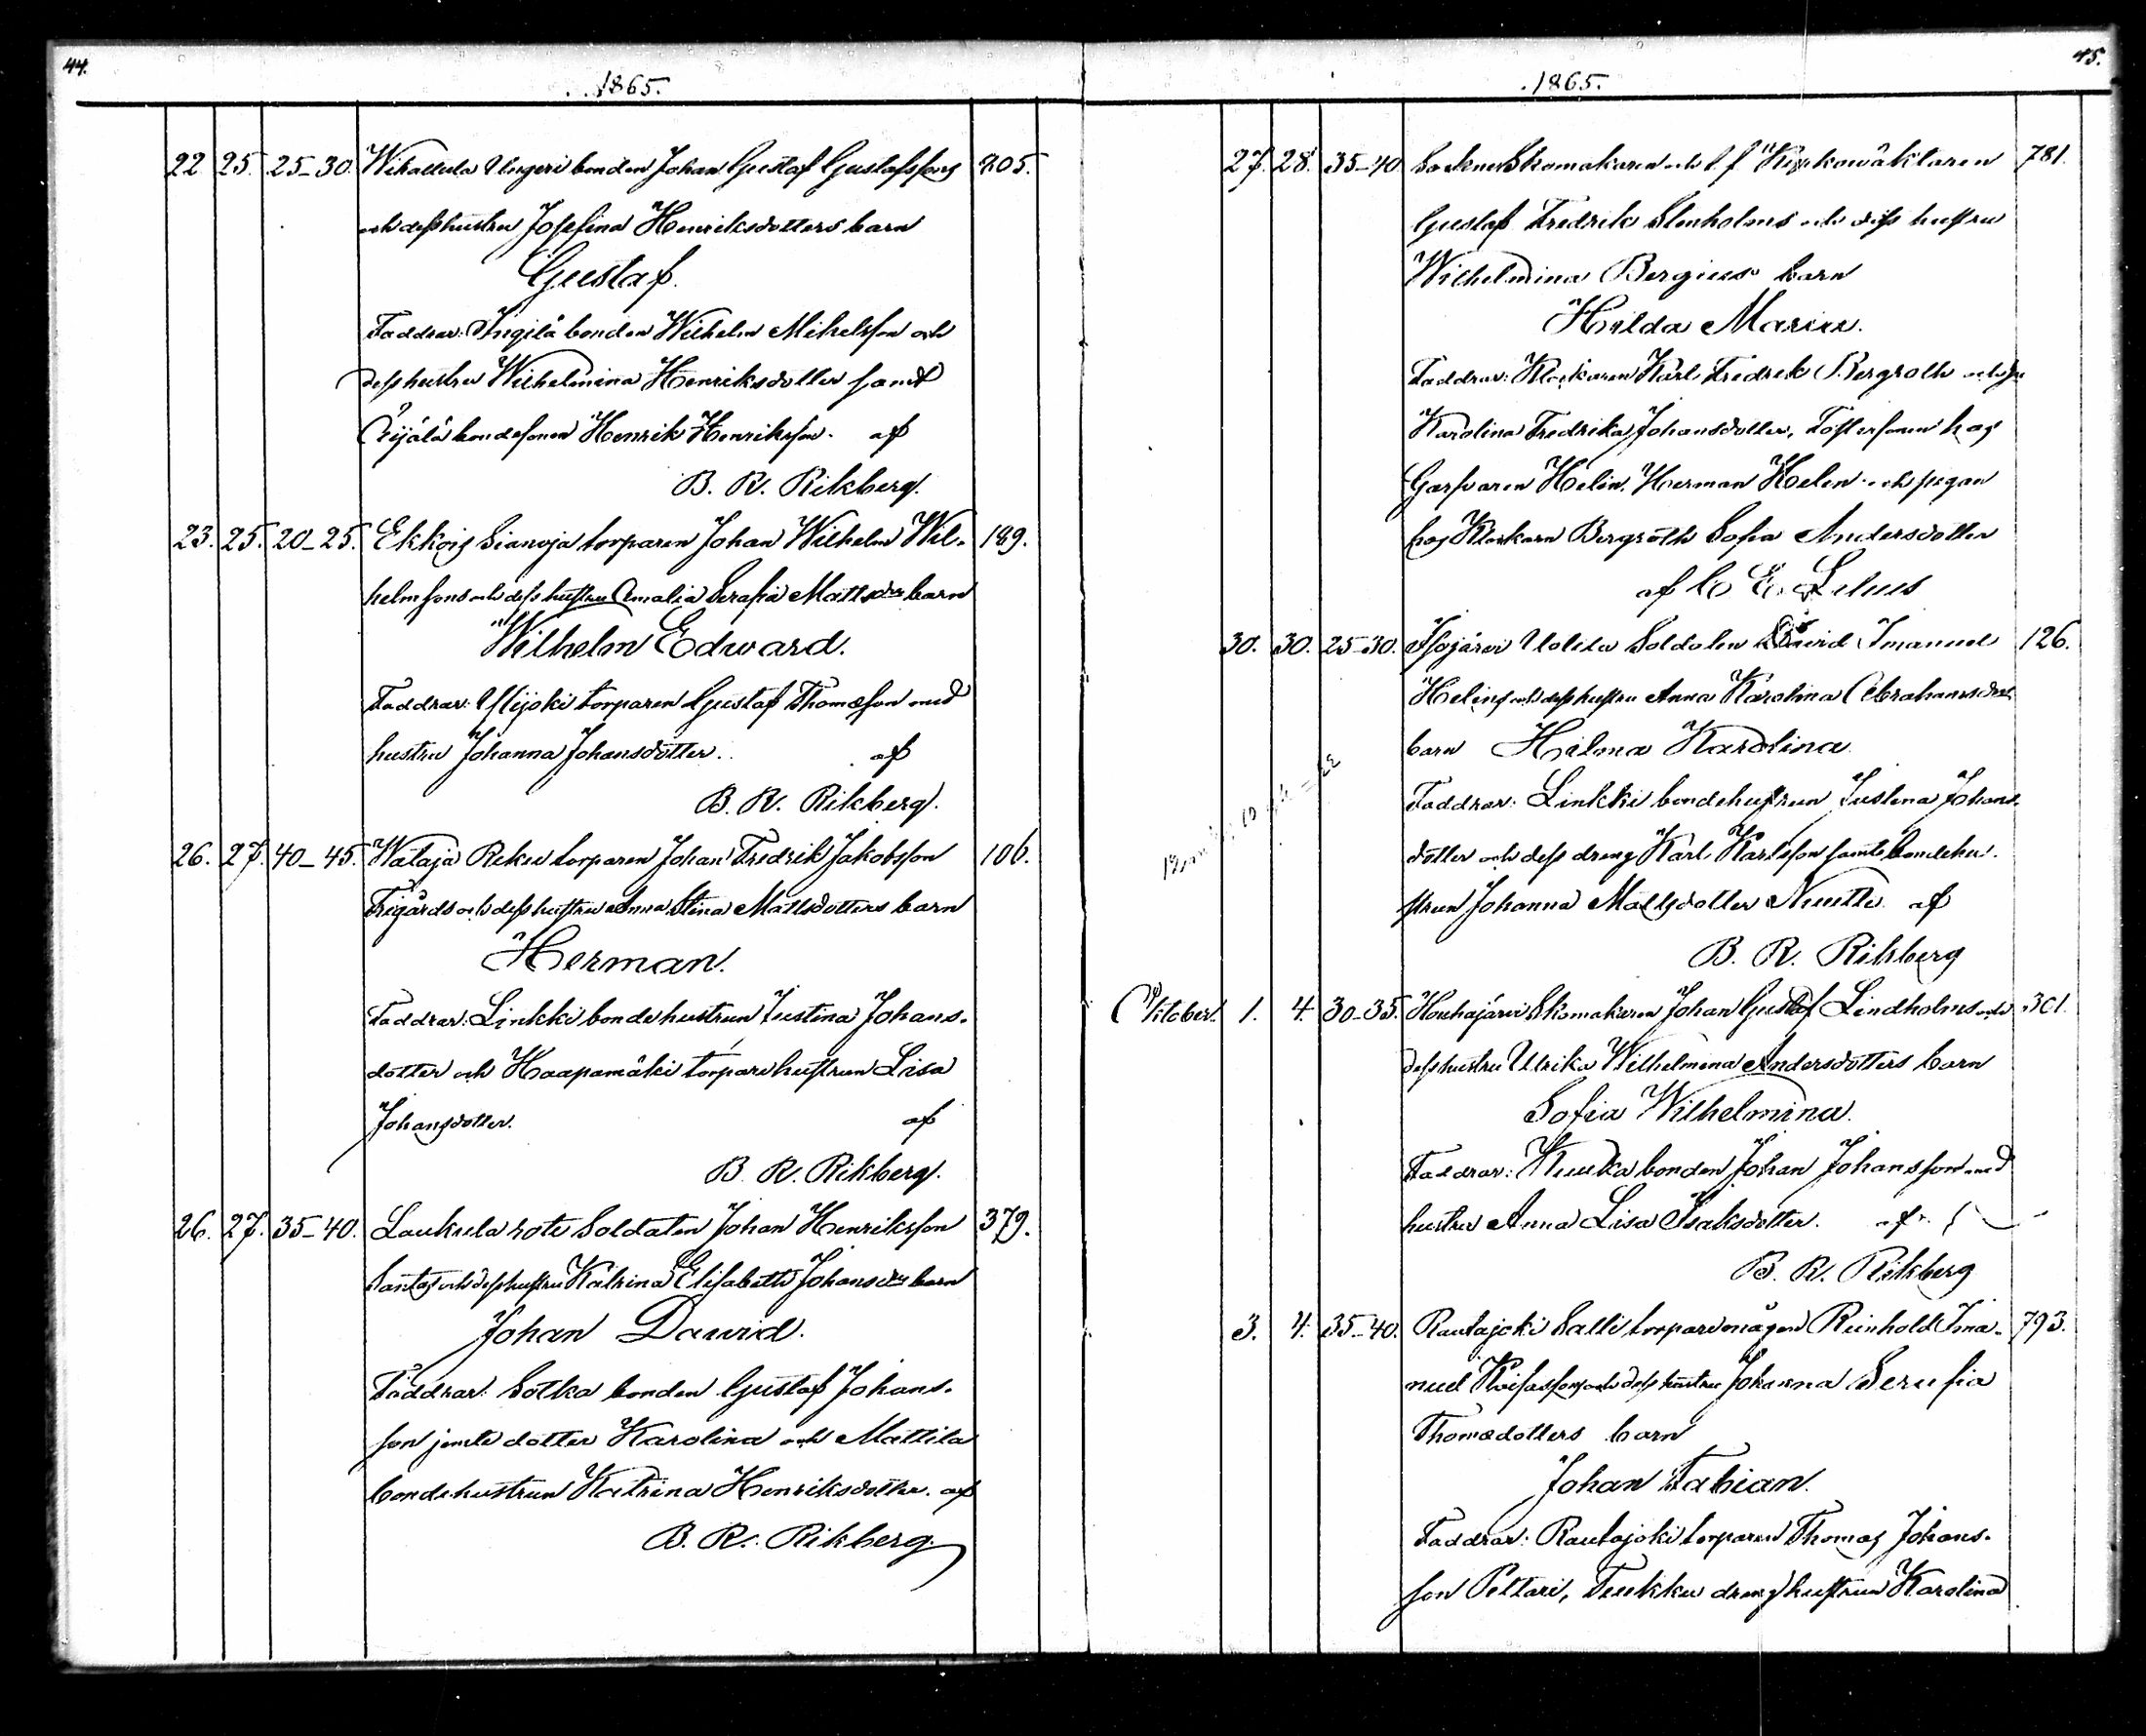 44.
1865.
22. 25. 25-30. Wihattula Ungeri bonden Johan Gustaf Gustafssons 205.
och dess hustru Josefina Henriksdotters barn
Gustaf.
Faddrar: Ingilä bonden Wilhelm Mikelsson och
dess hustru Wilhelmina Henriksdotter samt
bondesonen Henrik Henriksson. af
B. R. Rikberg.
23. 25. 20-25. Ekkois Sianoja torparen Johan Wilhelm Wil- 189.
helmsons och dess hustru Amalia Serafia Mattsdrs barn
Wilhelm Edward.
Faddrar: torparen Gustaf Thomasson med
hustru Johanna Johansdotter. af
B. R. Rikberg.
26. 27. 40-45. Wataja Reku torparen Johan Fredrik Jakobsson 106.
Frigårds och dess hustru Anna Stina Mattsdotters barn
Herman.
Faddrar: Linkki bondehustrun Justina Johans-
dotter och Haapamäki torparehustrun Lisa
Johansdotter. af
B. R. Rikberg.
26. 27. 35-40. Laukula rote Soldaten Johan Henriksson 379.
Santas och dess hustru Katrina Elisabeth Johansdrs barn
Johan Dawid.
Faddrar: Sotka bonden Gustaf Johans-
son jemte dotter Karolina och Mattila
bondehustrun Katrina Henriksdotter. af
B. R. Rikberg.
45.
1865.
27. 28. 35-40. Sockneskomakaren och t. f. Kyrkowäktaren 781.
Gustaf Fredrik Stenholms och dess hustru
Wilhelmina Bergius barn
Hilda Maria.
Faddrar: Klockaren Karl Fredrik Bergroth och
Karolina Fredrika Johansdotter, Fostersonen hos
Garfvaren Helin, Herman Helen och pigan
hos Klockarn Bergroth Sofia Andersdotter
af C. E. Lilius
30. 30. 25-30. Isojärvi Uotila Soldaten David Imanuel 126.
Helins och dess hustru Anna Karolina Abrahamsdrs
barn Hilma Karolina.
Faddrar: Linkki bondehustrun Justina Johans-
dotter och dess dreng Karl Karlsson samt bondehu-
strun Johanna Mattsdotter Nuutti. af
B. R. Rikberg
October. 1. 4. 30-35. Houhajärvi Skomakaren Johan Gustaf Lindholms och 301.
dess hustru Ulrika Wilhelmina Andersdotters barn
Sofia Wilhelmina.
Faddrar: Kuukka bonden Johan Johansson med
hustru Anna Lisa Isaksdotter. af
B. R. Rikberg
3. 4. 35-40. Rautajoki Salli torparemågen Reinhold Ima- 793.
nuel och dess hustru Johanna Serafia
Thomædotters barn
Johan Fabian.
Faddrar: Rautajoki torparen Thomas Johans-
son Pettari, Tuukku drenghustrun Karolina